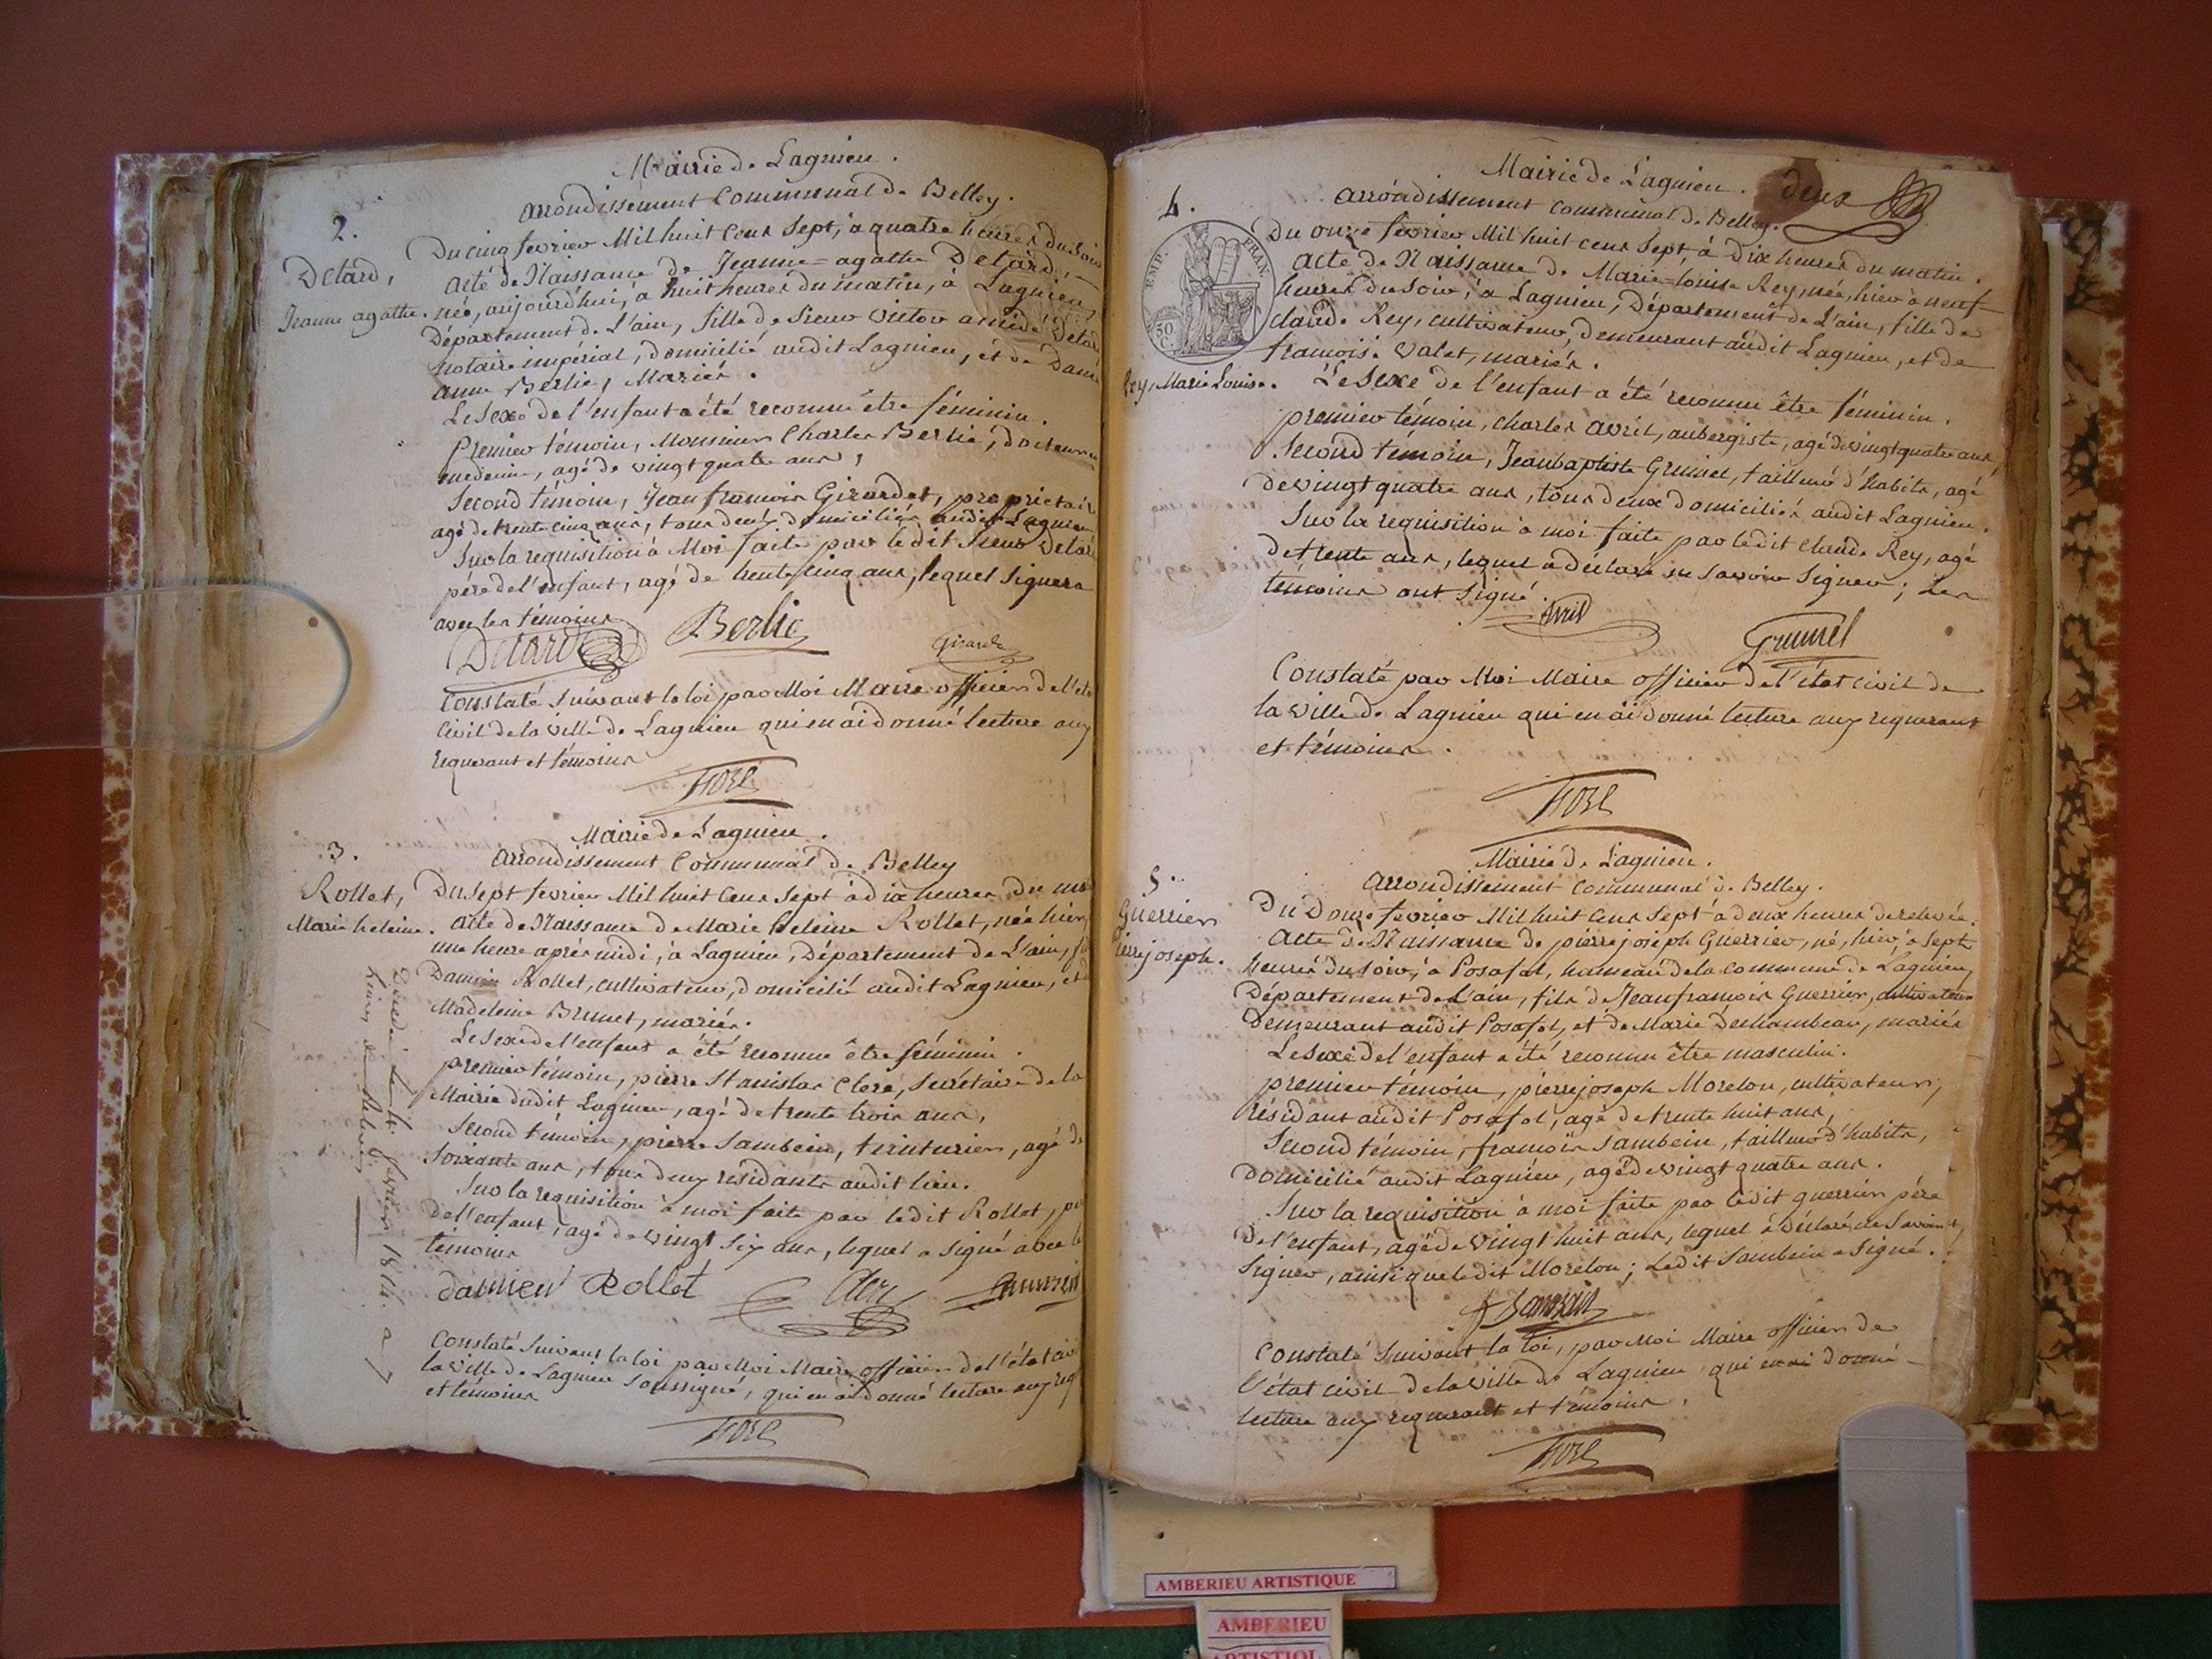 Mairie de Lagnieu.
arrondissement Communal de Belley.
2.
Detard,
Jeanne agathe.
Du cinq fevrier Mil huit Cens Sept, à quatre heures du Soir
acte de Naissance de Jeanne=agathe Detard,
née, aujourd'hui, à huit heures du matin, à Lagnieu,
Département de L'ain, fille de Sieur Victor amédé Detard
Notaire impérial, domicilié audit Lagnieu, et de Dame
anne Berlie, Mariés.
Le Sexe de l'enfant a été reconnu être féminin.
Premier témoin, Monsieur Charles Berlié, docteur en
medecine, agé de vingt quatre ans,
Second témoin, Jean françois Girardet, proprietair
agé de trente cinq ans, tous deux domiciliés audit Lagnieu
Sur la requisition à Moi faite par ledit Sieur Detard
père de l'enfant, agé de trente cinq ans, lequel Signera
avec les témoins
Detard Berlie Girardet
Constaté Suivant la loi par Moi Maire officier de l'éta
Civil de la ville de Lagnieu qui en ai donné lecture aux
requerant et témoins
Mairie de Lagnieu.
arrondissement Communal de Belley
3.
Rollet,
Marie heleine.
Du Sept fevrier Mil huit Cens Sept à dix heures du ma
acte de Naissance de Marie heleine Rollet, née hier
une heure après midi, à Lagnieu, Département de L'ain, f
Damien Rollet, cultivateur, domicilié audit Lagnieu, et d
Madeleine Brunet, mariés.
Le Sexe de l'enfant a été reconnu être féminin.
premier témoin, pierre Stanislas Clerc, Secrétaire de la
Mairie dudit Lagnieu, agé de trente trois ans,
Second témoin, pierre Sambein, teinturier, agé de
Soixante ans, tous deux résidants audit lieu.
Sur la requisition à moi faite par ledit Rollet, pe
de l'enfant, agé de vingt Six ans, lequel a Signé avec le
témoins
damien Rollet Clerc
Constaté Suivant la loi par Moi Maire officier de l'état civ
la ville de Lagnieu Soussigné, qui en ai donné lecture aux req
et témoins
Mairie de Lagnieu. deux
arrondissement communal de Belley.
4.
EMP. FRAN.
50 C.
Rey, Marie Louise.
Du onze fevrier Mil huit cens Sept, à Dix heures du matin.
acte de Naissance de Marie-louise Rey, née, hier à neuf
heures du Soir, à Lagnieu, Département de L'ain, fille de
claude Rey, cultivateur, demeurant audit Lagnieu, et de
françoise Valet, mariés.
Le Sexe de l'enfant a été reconnu être féminin.
premier témoin, charles avril, aubergiste, agé de vingt quatre ans,
Second témoin, Jean baptiste Grumel, tailleur d'habits, agé
de vingt quatre ans, tous deux domiciliés audit Lagnieu.
Sur la requisition à moi faite par ledit Claude Rey, agé
de trente ans, lequel a déclaré ne Savoir Signer; Les
témoins ont Signé.
Avril Grumel
Constaté par Moi Maire officier de l'état civil de
la ville de Lagnieu qui en ai donné lecture aux requerant
et témoins.
Mairie de Lagnieu.
arrondissement communal de Belley.
5.
Guerrier
Pierre joseph.
Du Douze fevrier Mil huit Cens Sept à deux heures de relevée.
Acte de Naissance de pierre joseph Guerrier, né, hier, à Sept
heures du Soir, à Posafol, hameau de la commune de Lagnieu,
Département de L'ain, fils de Jean françois Guerrier, cultivateur
demeurant audit Posafol, et de Marie Dechambeau, mariés
Le Sexe de l'enfant a été reconnu être masculin.
premier témoin, pierre joseph Morelon, cultivateur,
résidant audit Posafol, agé de trente huit ans,
Second témoin, françois Sambein, tailleur d'habits,
domicilié audit Lagnieu, agé de vingt quatre ans.
Sur la requisition à moi faite par ledit guerrier père
de l'enfant, agé de vingt huit ans, lequel a déclaré ne Savoir
Signer, ainsi que ledit Morelon; Ledit Sambein a Signé.
Constaté Suivant la loi, par Moi Maire officier de
l'état civil de la ville de Lagnieu qui en ai donné
lecture aux requerant et témoins.
AMBERIEU ARTISTIQUE
AMBERIEU